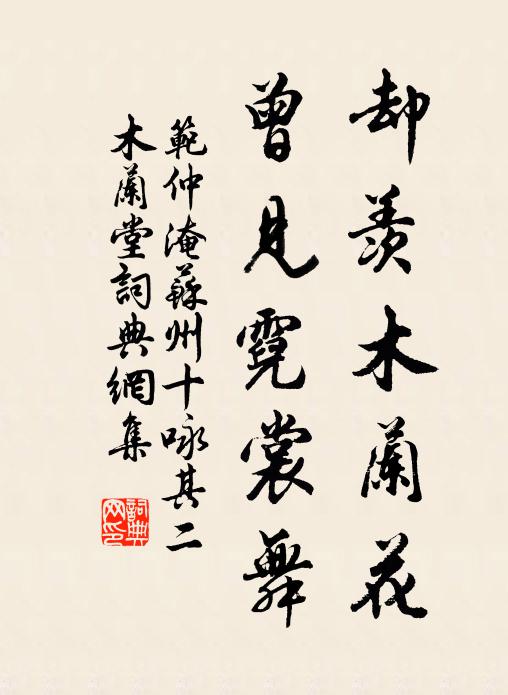 却羨木蘭花
曾見霓裳舞
範仲淹蘇州十咏其二
木蘭堂詞典網集
詞典
网印